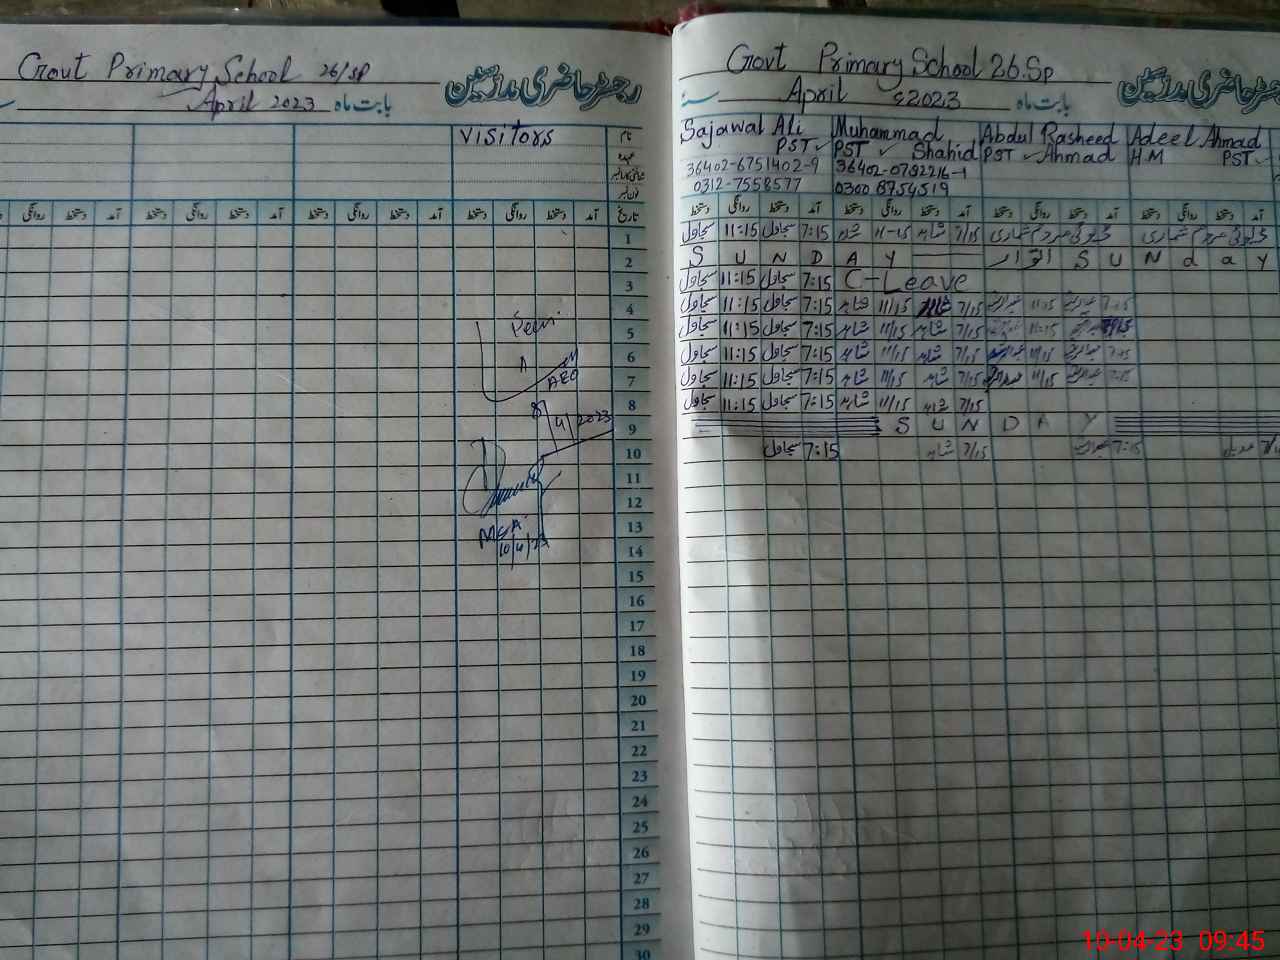 Govt Primary School 26/SP
رجسٹر حاضری مدرسین
April 2023 بابت ماہ
Visitors
نام
عہدہ
آمد دستخط روانگی دستخط
تاریخ
1
2
3
4
5
6
7
8
9
10
11
12
13
14
15
16
17
18
19
20
21
22
23
24
25
26
27
28
29
30
AEO
8/4/2023
MEA
10/4/23
Govt Primary School 26.Sp
رجسٹر حاضری مدرسین
April ء2023 بابت ماہ
Sajawal Ali Muhammad Abdul Rasheed Adeel Ahmad
PST PST Shahid PST Ahmad H.M PST
36402-6751402-9 36402-0782216-1
0312-7558577 0300 8754519
دستخط روانگی دستخط آمد دستخط روانگی دستخط آمد دستخط روانگی دستخط آمد دستخط روانگی دستخط آمد
سجاول 11:15 سجاول 7:15 شاہد 11-15 شاہد 7/15
S U N D A Y اتوار S U N d a Y
سجاول 11:15 سجاول 7:15 C-Leave
سجاول 11:15 سجاول 7:15 شاہد 11/15 شاہد 7/15 11:15 7:15
سجاول 11:15 سجاول 7:15 شاہد 11/15 شاہد 7/15 11:15 7:15
سجاول 11:15 سجاول 7:15 شاہد 11/15 شاہد 7/15 11/15 7:15
سجاول 11:15 سجاول 7:15 شاہد 11/15 شاہد 7/15 11/15 7:15
سجاول 11:15 سجاول 7:15 شاہد 11/15 شاہد 7/15
S U N D A Y
سجاول 7:15 شاہد 7/15 7:15
10-04-23 09:45